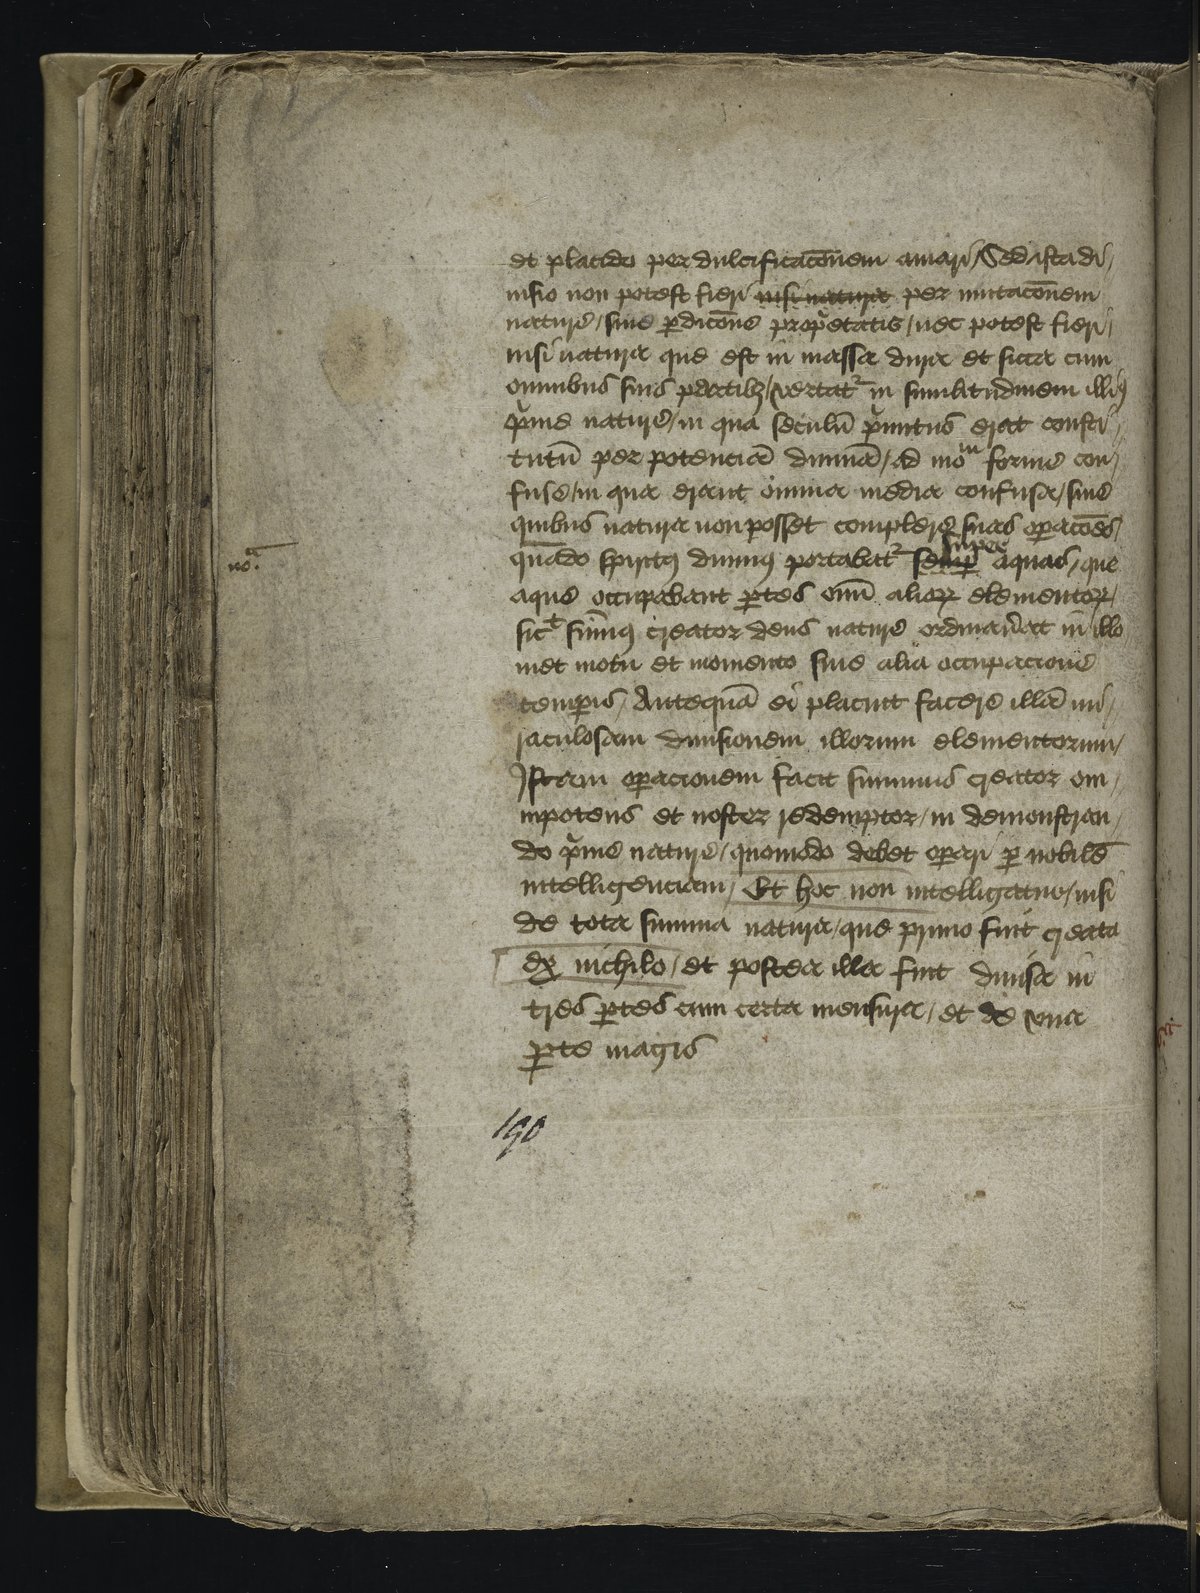 et placido per dulcificacōnem amari / Sed ista di/
uisio non potest fieri nisi natura per mutacōnem
nature / siue p̱dicōne propͥetatis / nec potest fieri /
nisi natura que est in massa dura et sicca cum
omnibus suis partibꝫ / vertatᷣ in similitudinem illiꝰ
pͥme nature / in qua seculū pͥmitus erat consti/
tutū per potenciā diuinā / ad moᵐ forme con/
fuse / in qua erant omnia media confusa / sine
quibus natura non posset complere suas oꝑacōes /
no.ᵃ
quādo spiritꝰ diuinꝰ portabatᷣ semꝑ super aquas / que
aque occupabant ꝑtes omī alioꝝ elementoꝝ /
sicᵗ sūmꝰ creator deus nature ordinau̓at in illo
met motu et momento siue alia occupacione
temꝑis / Antequā ei placuit facere illā mi/
raculosam diuisionem illorum elementorum /
Istam oꝑacionem facit summus creator om/
nipotens et noster redemptor / in demonstran/
do pͥme nature / quomodo debet oꝑari ꝑ nobilē
intelligenciam / Et hoc non intelligatur / nisi
de tota summa natura / que primo fuit creata
ex nichilo / et postea illa fuit diuisa in
tres ꝑtes cum certa mensura / et de vna
ꝑte magis
190